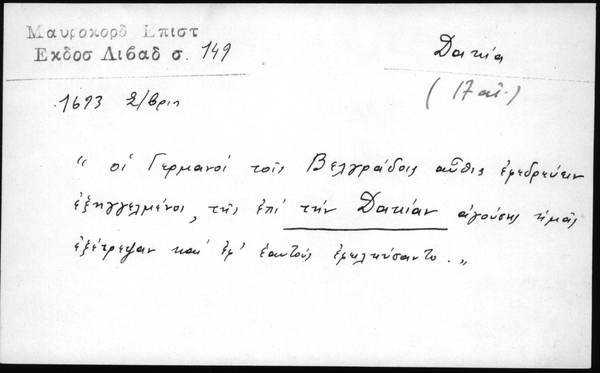 Μαυροκορδ Επιστ
Εκδοσ Λιβαδ σ. 149
Δακία
(17 αἰ.)
1693 2/βρίῃ
“ οἱ Γερμανοί τοῖς Βελγράδοις αὖθις ἐφεδρεύειν
ἐξηγγελμένοι, τῆς ἐπί τήν Δακίαν ἀγούσης ἡμᾶς
ἐξέτρεψαν καί ἐφ' ἑαυτούς ἐφελκύσαντο. „